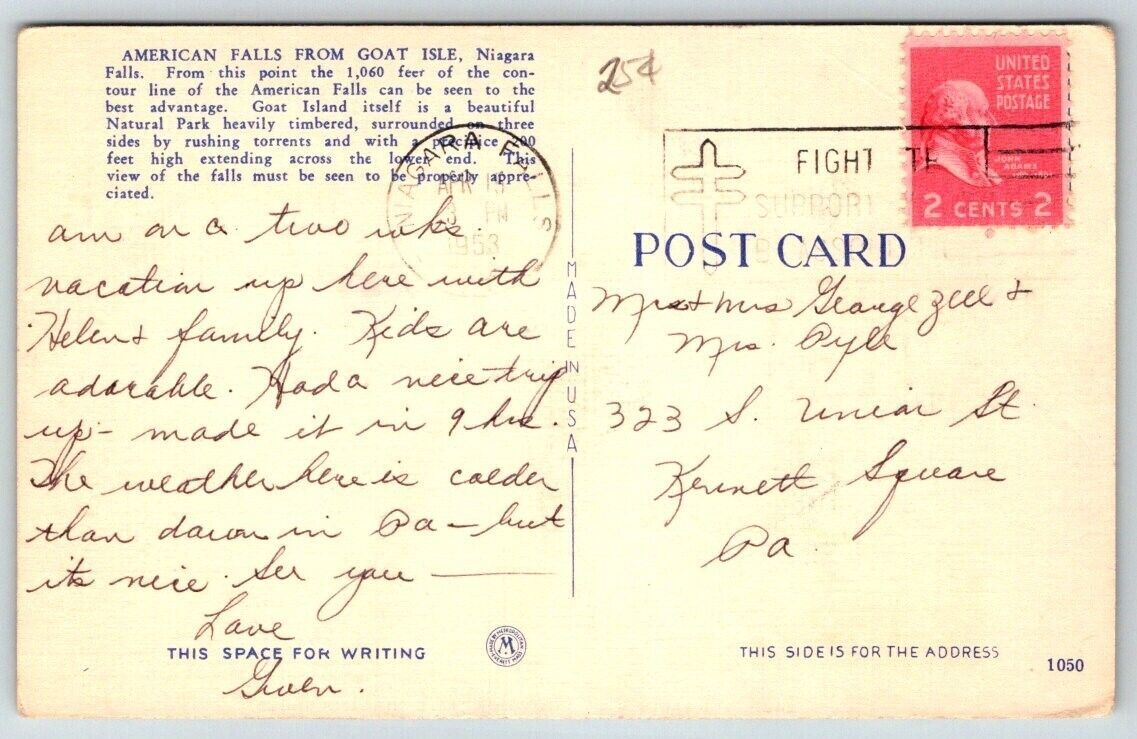 AMERICAN FALLS FROM GOAT ISLE, Niagara
Falls. From this point the 1,060 feer of the con-
tour line of the American Falls can be seen to the
best advantage. Goat Island itself is a beautiful
Natural Park heavily timbered, surrounded on three
sides by rushing torrents and with a precipice 00
feet high extending across the lower end. This
view of the falls must be seen to be properly appre-
ciated.
25¢
NIAGARA FALLS
APR 1
3 PM
1953
FIGHT
SUPPORT
UNITED
STATES
POSTAGE
JOHN
ADAMS
2 CENTS 2
am on a two wks.
vacation up here with
Helen & family. Kids are
adorable. Had a nice trip
up - made it in 9 hrs.
The weather here is colder
than down in Pa - but
its nice. See you
Love
Gwen.
THIS SPACE FOR WRITING
MADE IN USA
MADE BY METROPOLITAN
M
EVERETT MASS
POST CARD
& Mrs George Zell &
Mrs. Pyle
323 S. Union St.
Kennett Square
Pa.
THIS SIDE IS FOR THE ADDRESS
1050